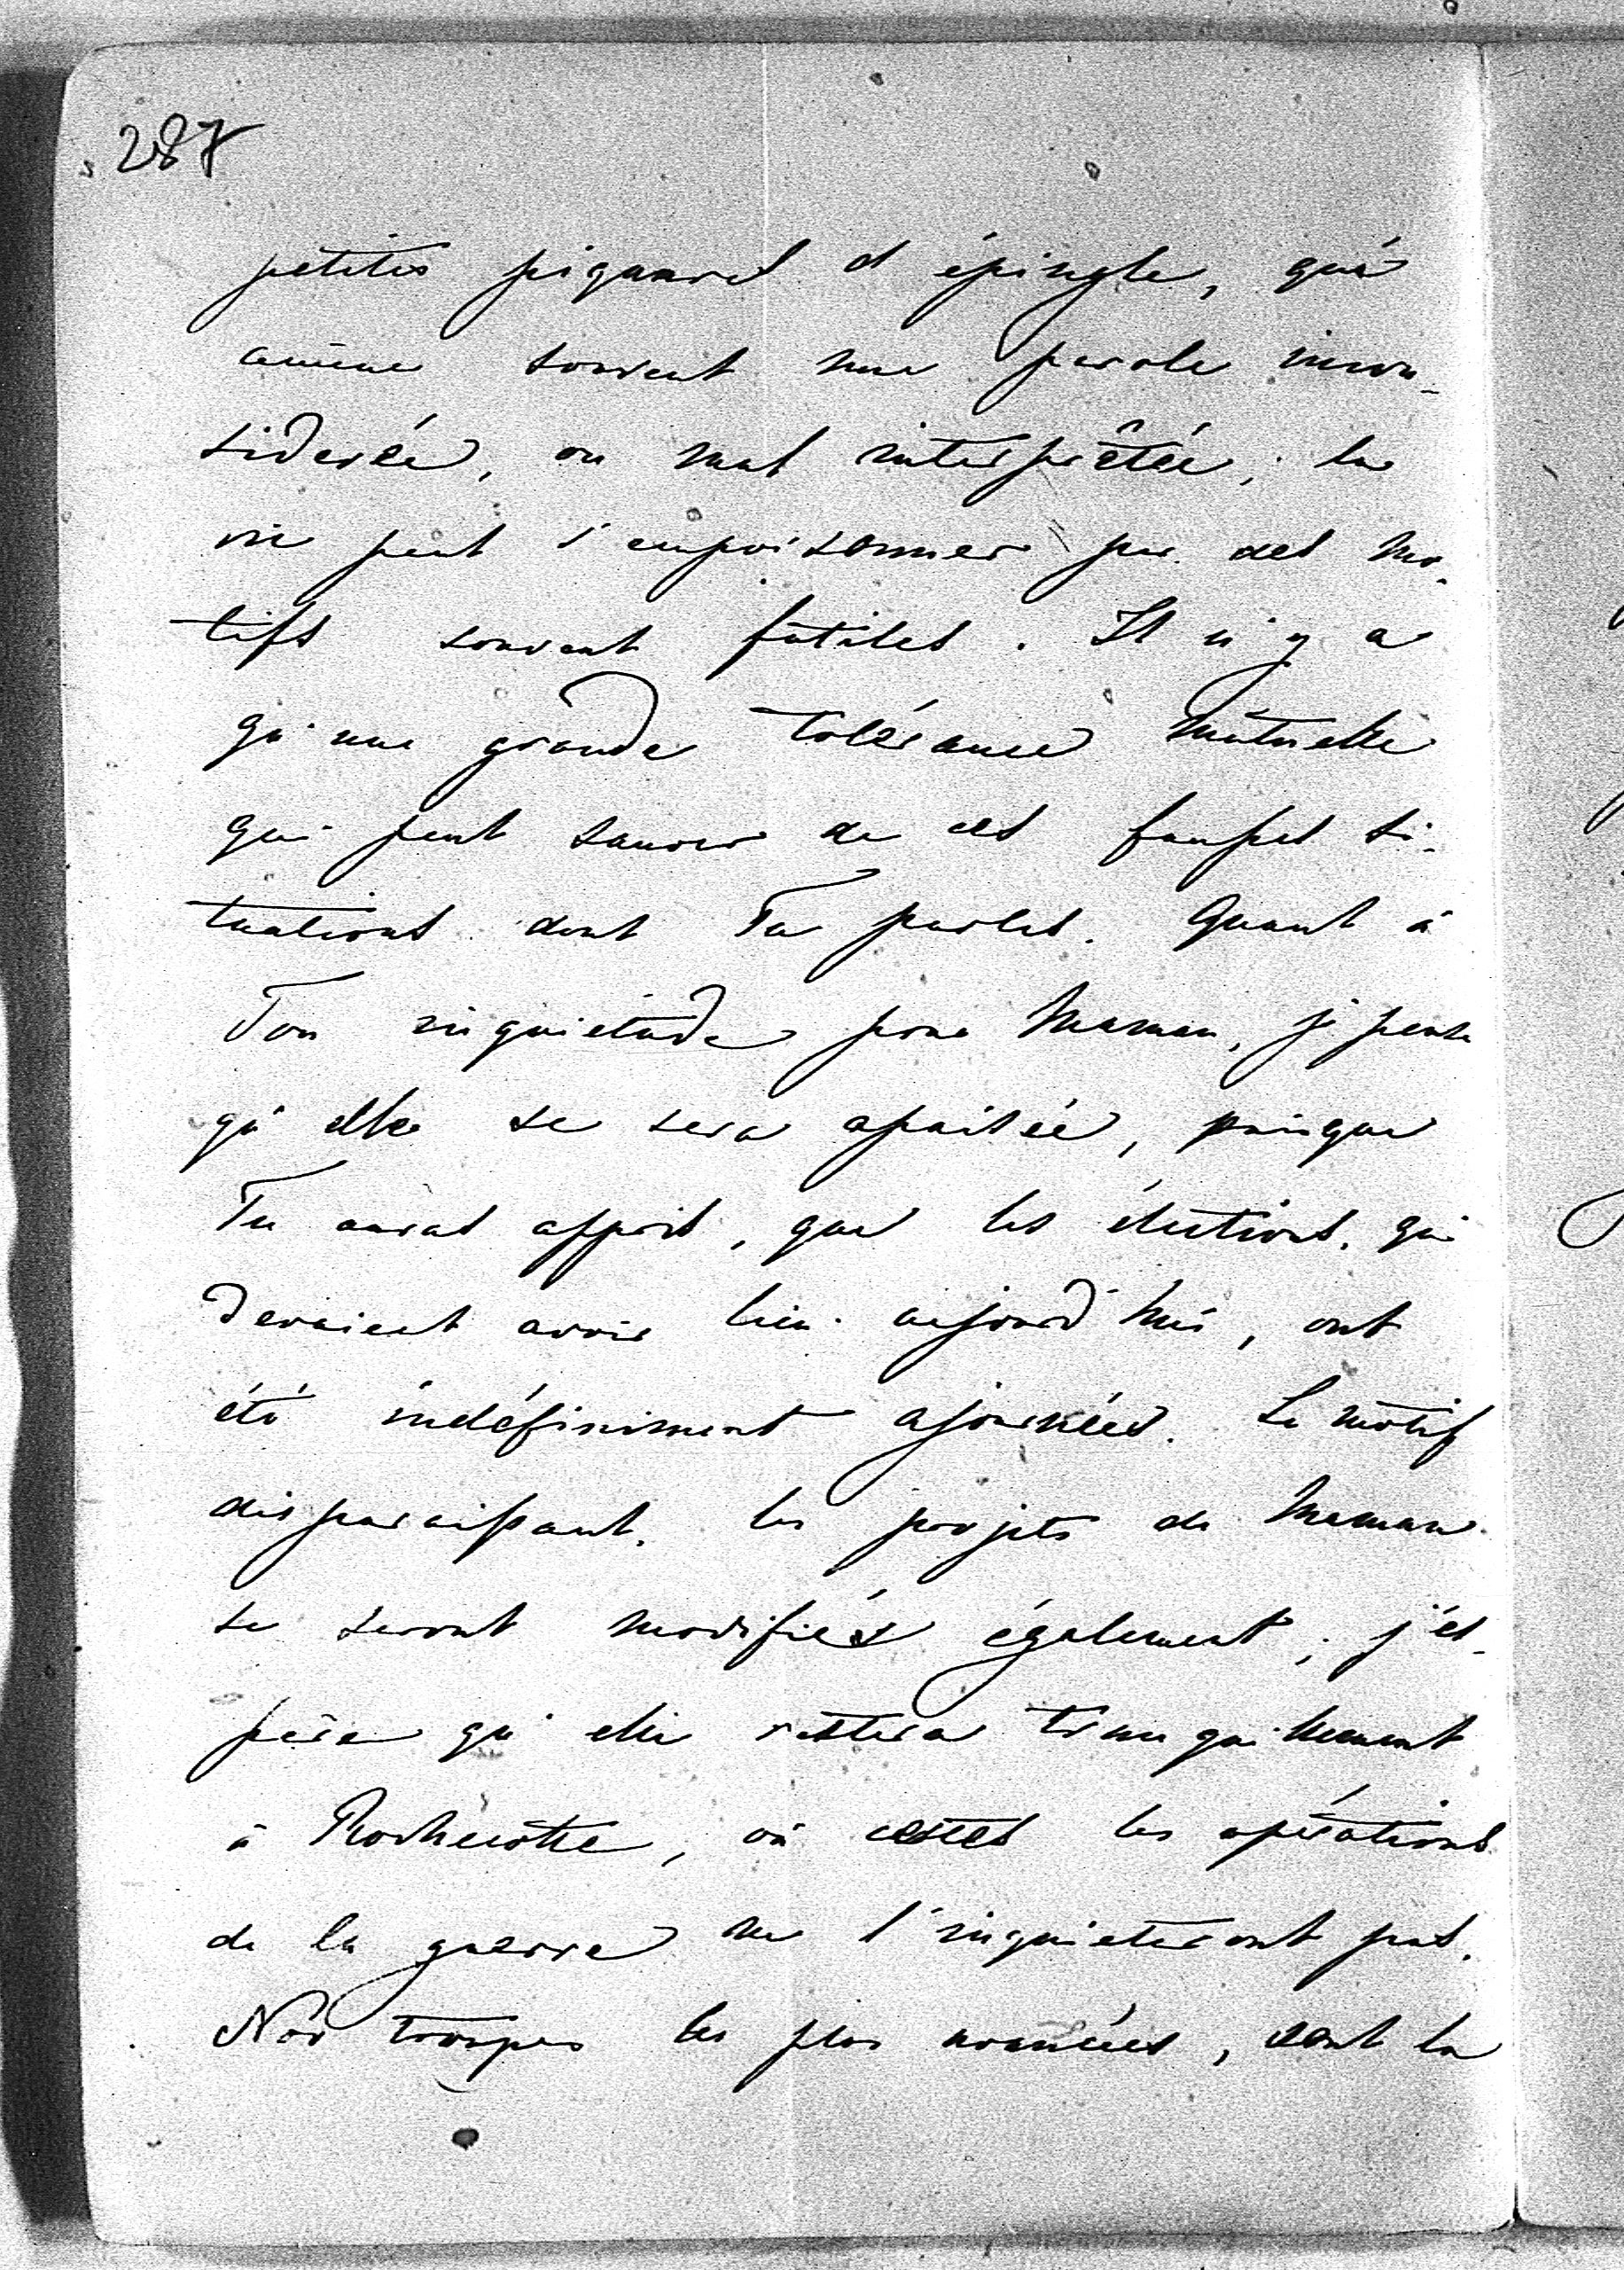 287
petites piqures d'épingle, qu'
amène souvent une parole incon-
siderée, ou mal interprêtée; la
vie peut s'empoisonner par des mo-
tifs souvent futiles. Il n'y a
qu'une grande tolérance mutuelle
qui peut sauver de ces fausses si-
tuations dont Tu parles. Quant à
Ton inquietude pour Maman, je pense
qu'elle se sera apaisée, puisque
Tu auras appris, que les élections, qui
devaient avoir lieu aujourd'hui, ont
été indéfiniment ajournées. Le motif
disparaissant, les projets de Maman
se seront modifiés également; j'es-
père qu'elle restera tranquillement
à Rochecotte, où certes les opérations
de la guerre ne l'inquieteront pas.
Nos troupes les plus avancées, dont la